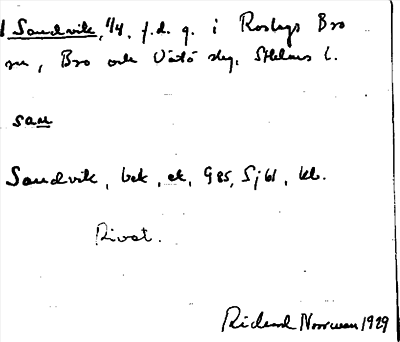 Sandvik, 1/4, f.d. g. i Roslags Bro
sn, Bro och Vätö skg, Sthlms l.
san
Sandvik, bek, ek, G 85, Sj 61, kb.
Rivat.
Rickard Norrman 1929